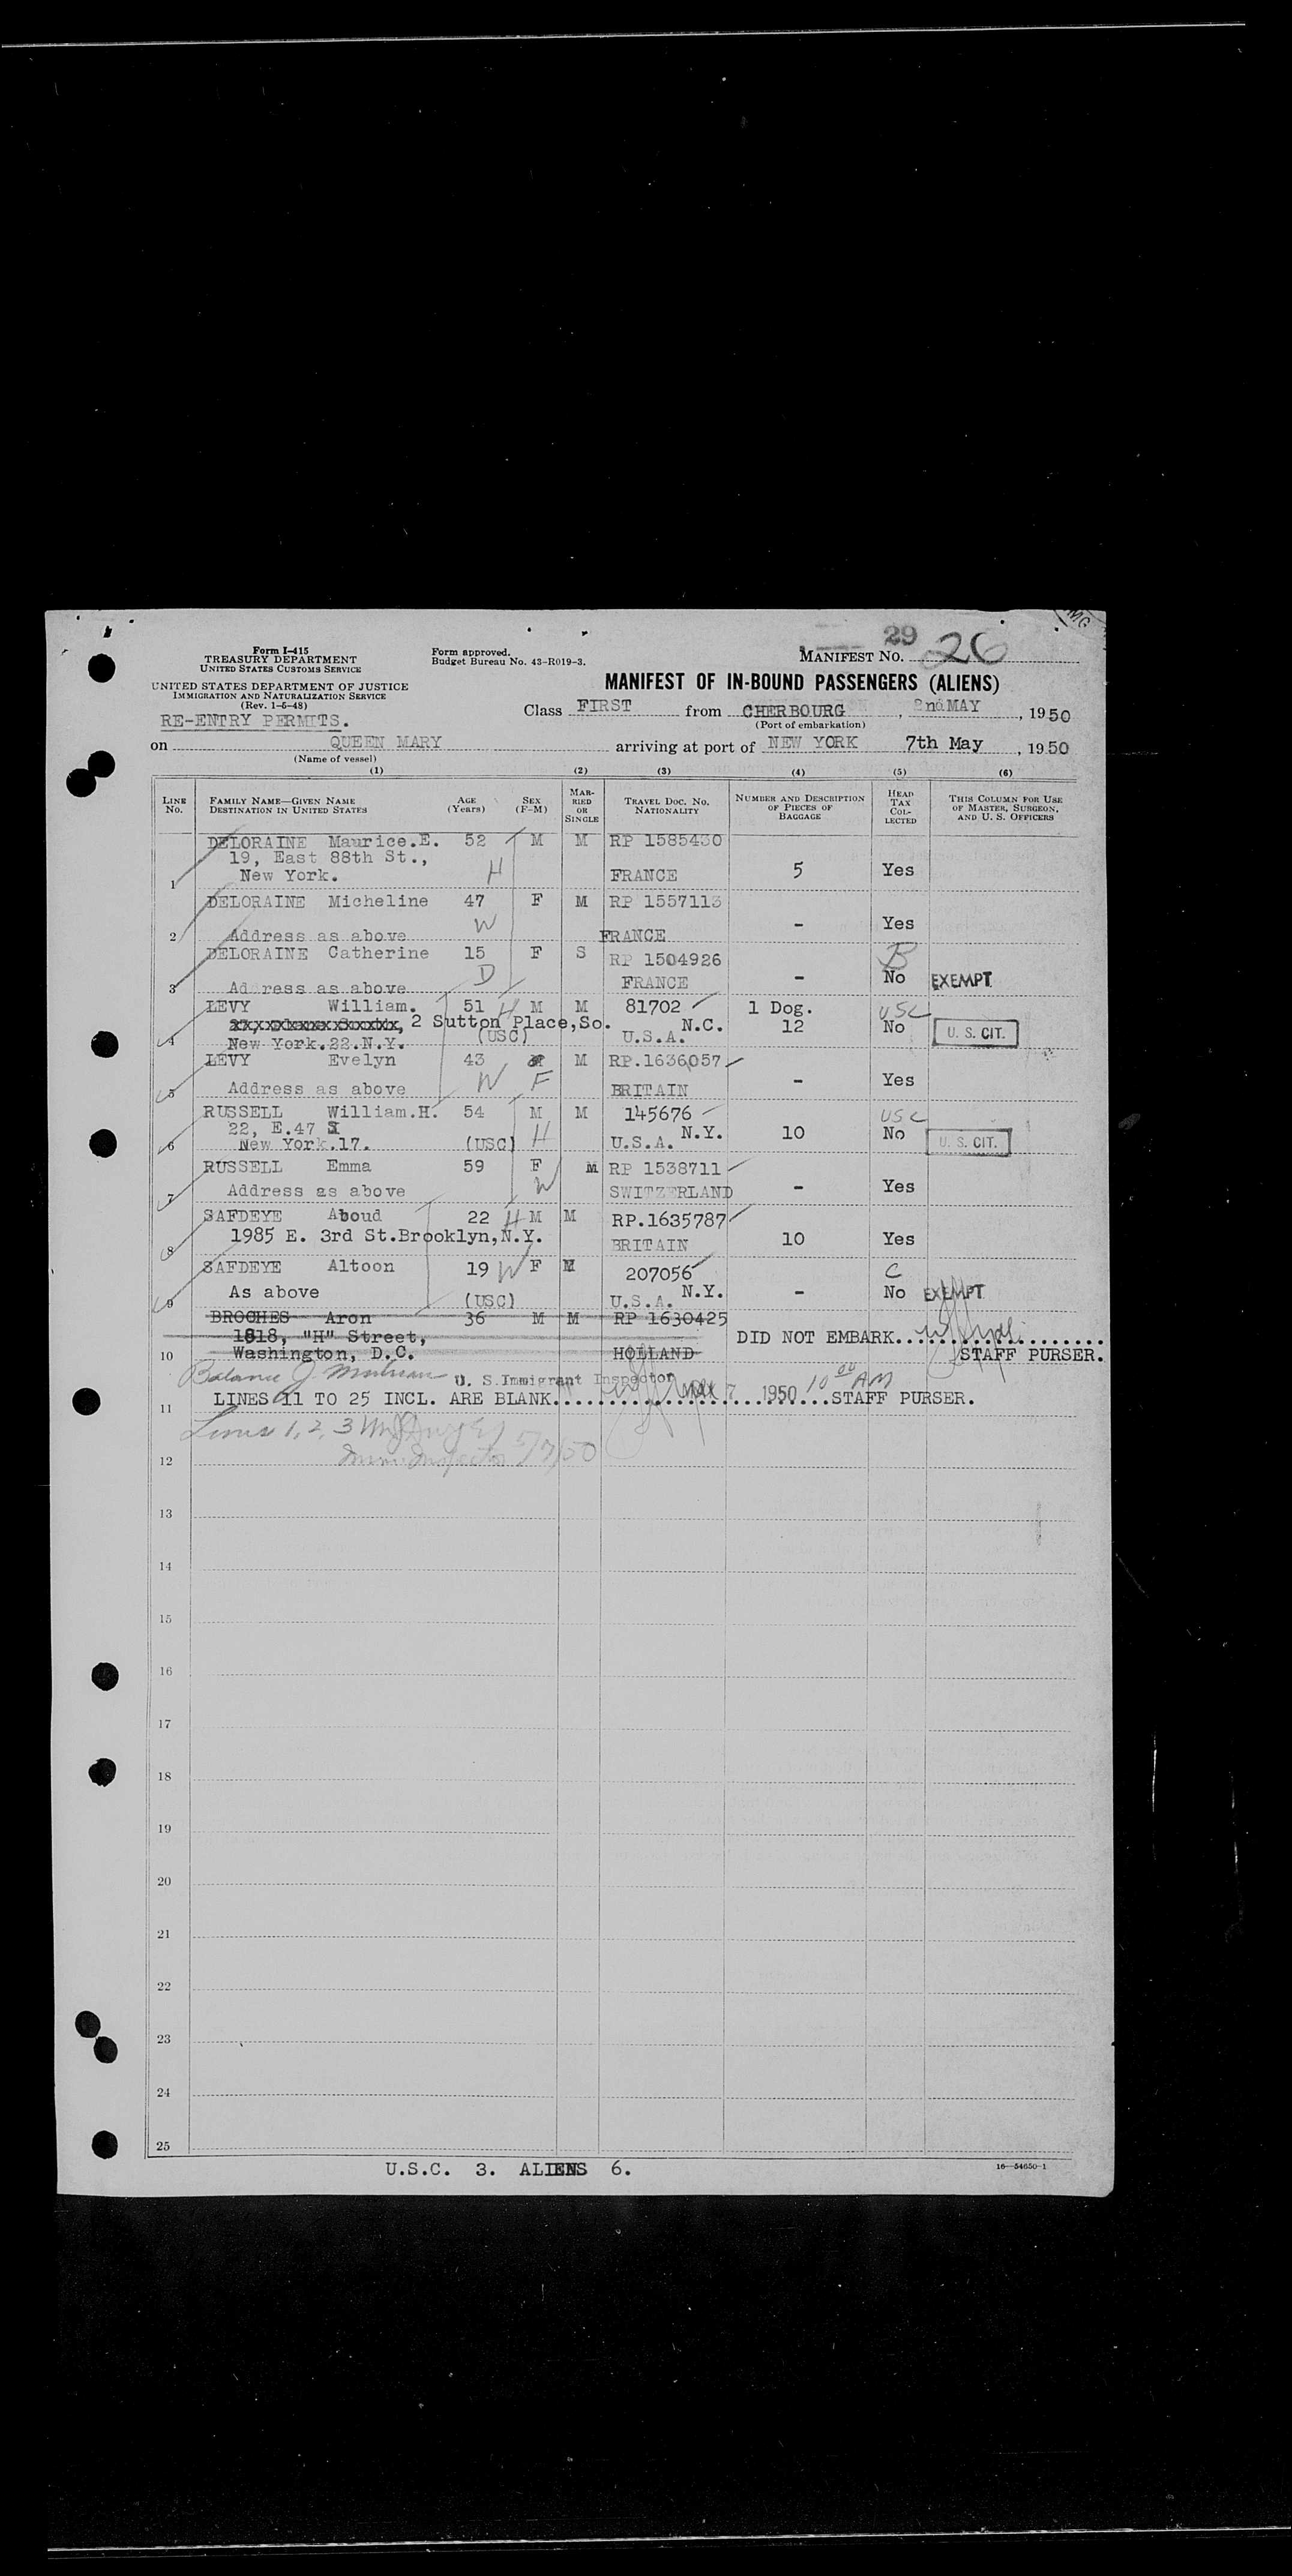 29
Form I-415
TREASURY DEPARTMENT
UNITED STATES CUSTOMS SERVICE
Form approved.
Budget Bureau No. 43-R019-3.
MANIFEST NO. 26
UNITED STATES DEPARTMENT OF JUSTICE
IMMIGRATION AND NATURALIZATION SERVICE
(Rev. 1-5-48)
MANIFEST OF IN-BOUND PASSENGERS (ALIENS)
RE-ENTRY PERMITS.
Class FIRST from CHERBOURG, 2nd MAY, 1950
(Port of embarkation)
on QUEEN MARY arriving at port of NEW YORK 7th May, 1950
(Name of vessel)
(1) (2) (3) (4) (5) (6)
LINE NO. FAMILY NAME—GIVEN NAME DESTINATION IN UNITED STATES AGE (Years) SEX (F-M) MARRIED OR SINGLE TRAVEL DOC. NO. NATIONALITY NUMBER AND DESCRIPTION OF PIECES OF BAGGAGE HEAD TAX COLLECTED THIS COLUMN FOR USE OF MASTER, SURGEON, AND U. S. OFFICERS
DELORAINE Maurice.E. 52 M M RP 1585430
19, East 88th St.,
1 New York. H FRANCE 5 Yes
DELORAINE Micheline 47 F M RP 1557113
2 Address as above W FRANCE - Yes
DELORAINE Catherine 15 F S RP 1504926 B
3 Address as above D FRANCE - No EXEMPT
LEVY William. 51 H M M 81702 1 Dog. USC
2 Sutton Place, So. N.C. 12 No U. S. CIT.
4 New York.22.N.Y. (USC) U.S.A.
LEVY Evelyn 43 M RP.1636057
5 Address as above W F BRITAIN - Yes
RUSSELL William.H. 54 M M 145676 USC
22, E.47 N.Y. 10 No U. S. CIT.
6 New York.17. (USC) H U.S.A.
RUSSELL Emma 59 F M RP 1538711
7 Address as above W SWITZERLAND - Yes
SAFDEYE Aboud 22 H M M RP.1635787
8 1985 E. 3rd St.Brooklyn,N.Y. BRITAIN 10 Yes
SAFDEYE Altoon 19 W F M 207056 C
As above N.Y. - No EXEMPT
9 (USC) U.S.A.
BROCHES Aron 36 M M RP 1630425
1818, "H" Street, DID NOT EMBARK..
10 Washington, D.C. HOLLAND STAFF PURSER.
Balance U. S. Immigrant Inspector MAY 7 1950 10 00 AM
11 LINES 11 TO 25 INCL. ARE BLANK. STAFF PURSER.
Lines 1, 2, 3
12 Imm. Inspector 5/7/50
13
14
15
16
17
18
19
20
21
22
23
24
25
U.S.C. 3. ALIENS 6.
16—54650-1